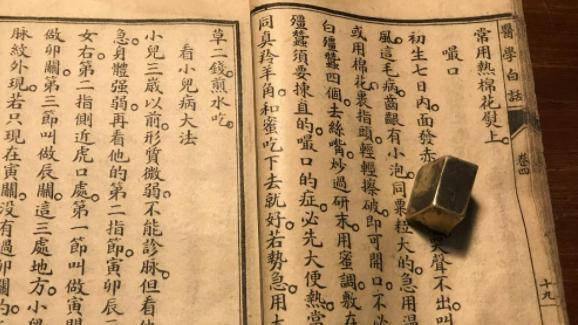 醫學白話
卷四
十九
常用熱棉花熨上。
嘬口
初生七日內面發赤哭聲不出叫
風。這毛病齒齦有小泡。同粟粒大的。急用溫
或用棉花裹指頭。輕輕擦破。即可開口。不必
白殭蠶四個。去絲嘴。炒過研末。用蜜調敷在
殭蠶須要揀直的。嘬口的症。必先大便熱當
同真羚羊角。和蜜吃下去就好。若勢急。用大
草二錢。煎水吃。
看小兒病大法
小兒三歲以前。形質微弱。不能診脉。但看他
急。身體強弱。再看他的第二指節寅卯辰三
女右第二指側近虎口處。第一節叫做寅關
做卯關。第三節叫做辰關。這三處地方。小兒
脉紋外現。若只現在寅關。沒有過卯關的